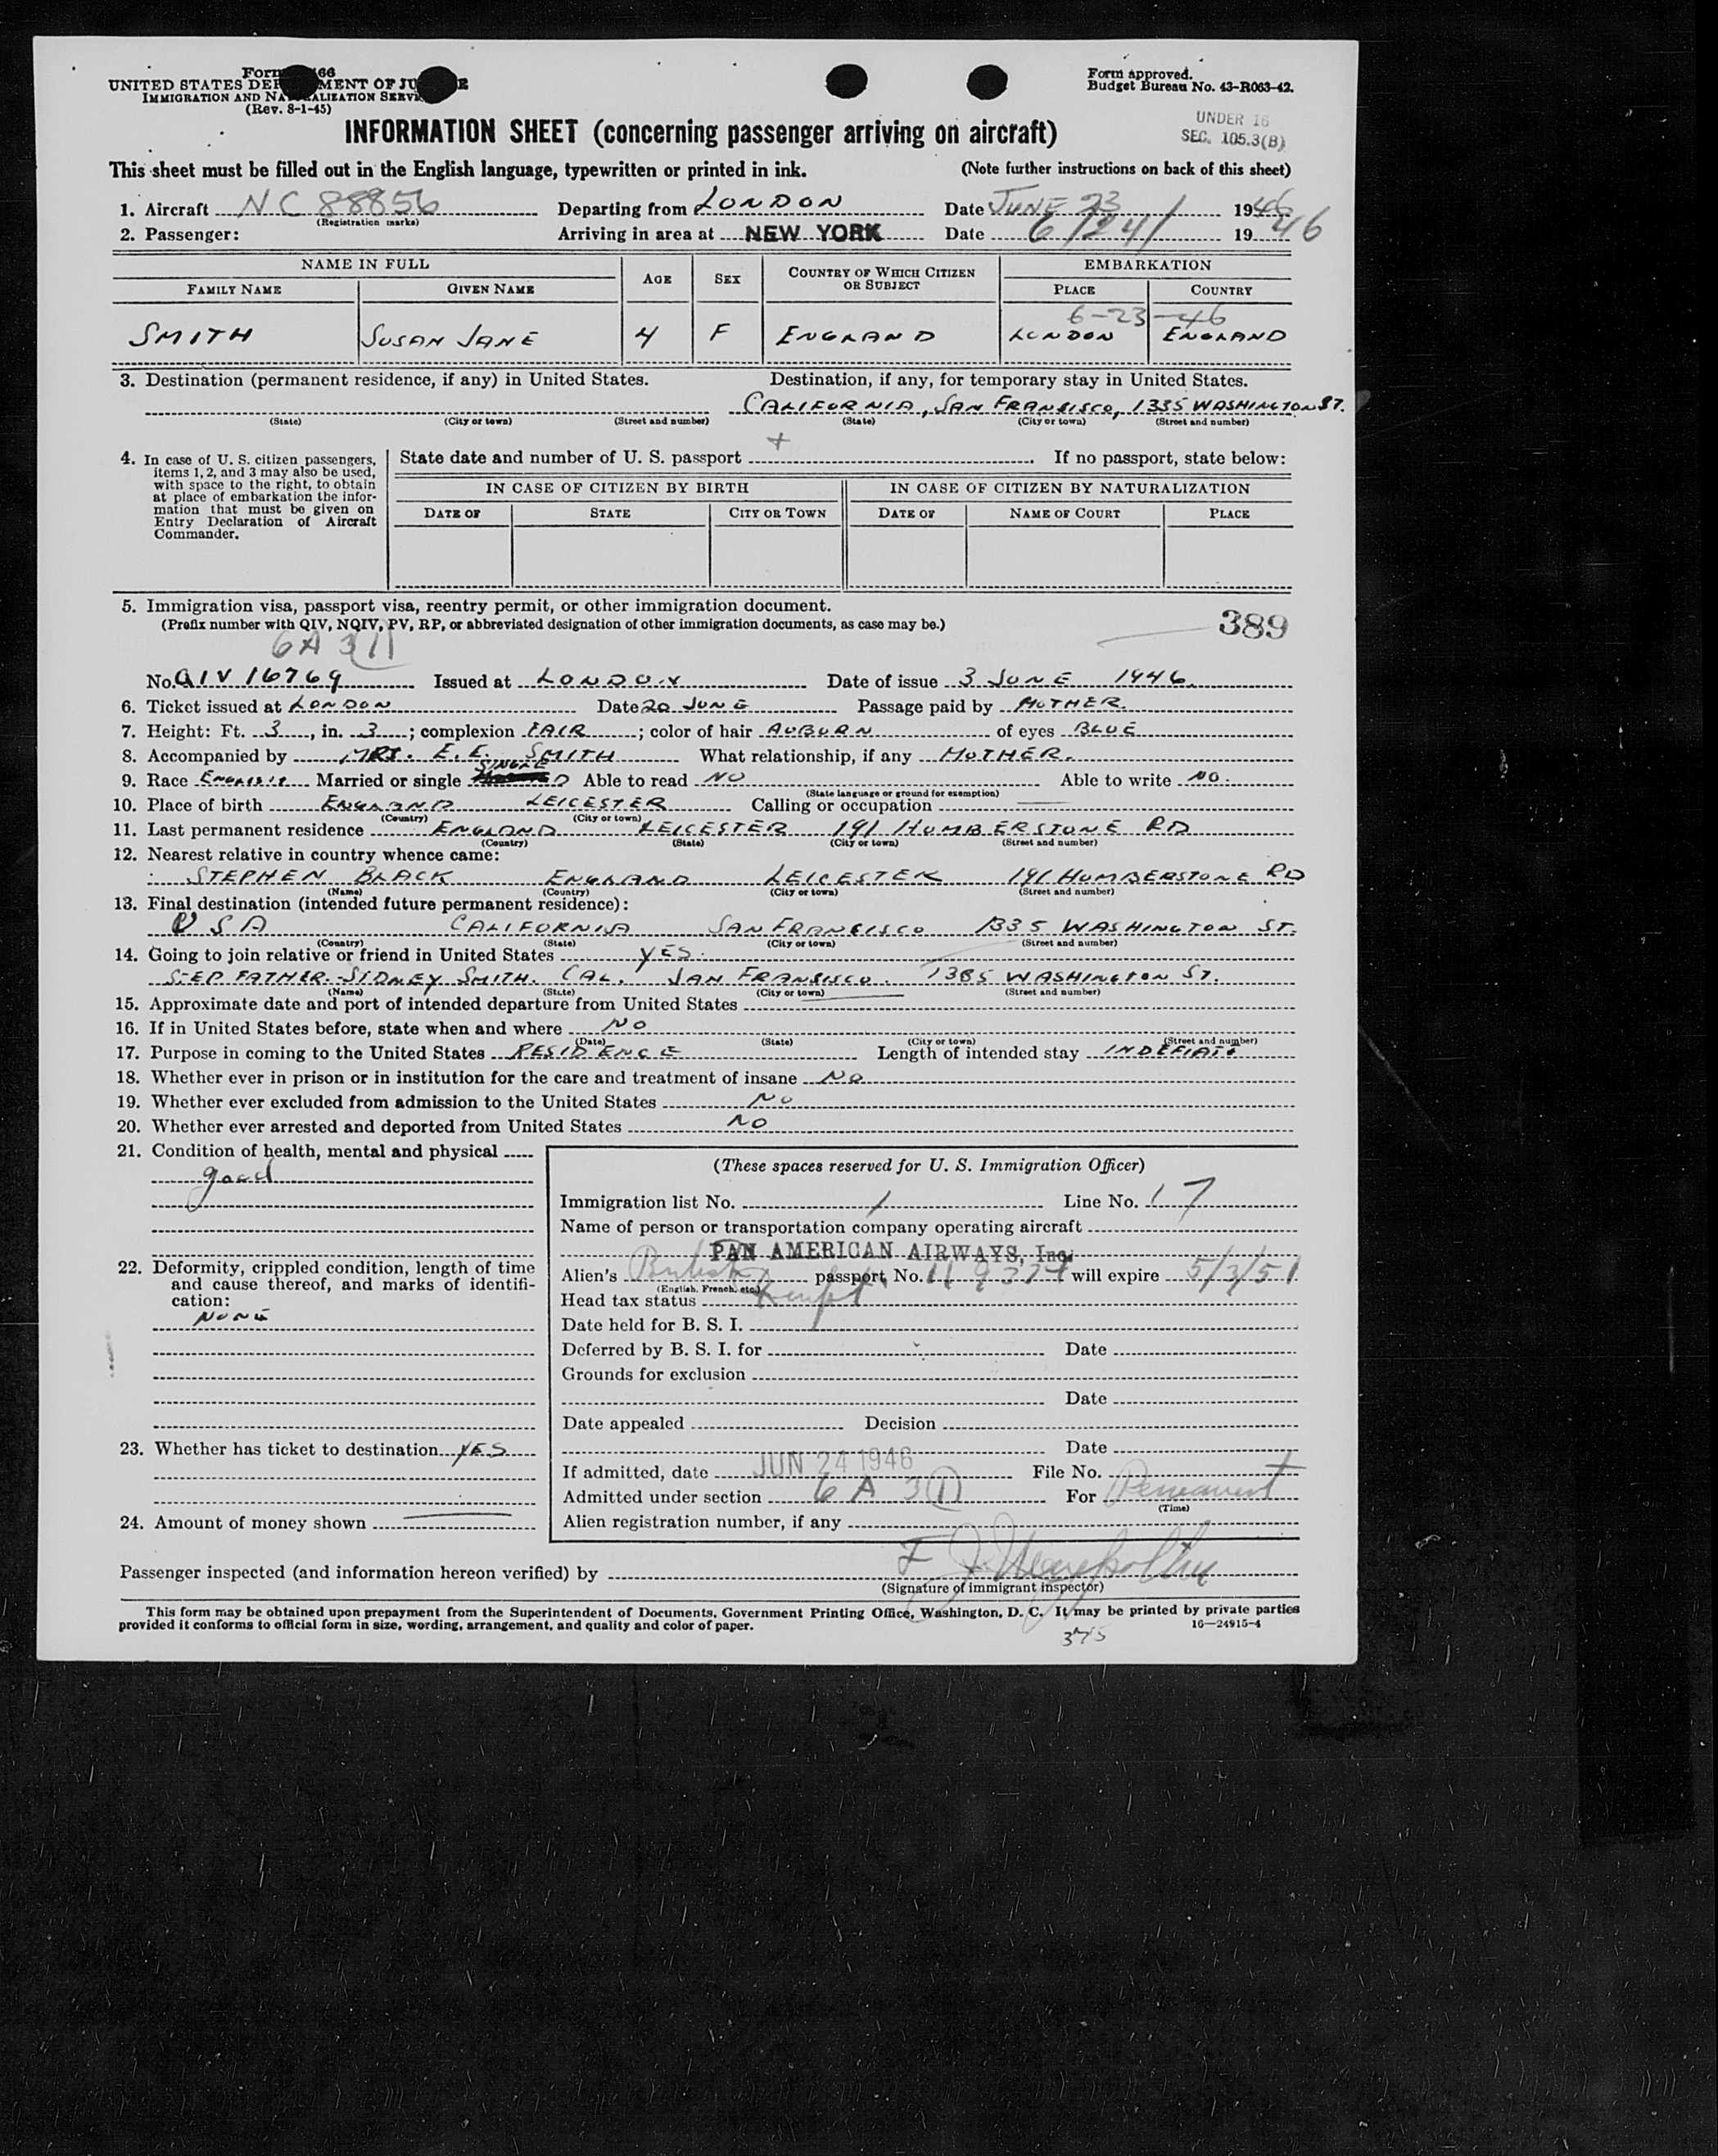 Form 66
UNITED STATES DEP MENT OF JU E
IMMIGRATION AND NATURALIZATION SERVI
(Rev. 8-1-45)
Form approved.
Budget Bureau No. 43-R063-42.
UNDER 16
SEC. 105.3(B)
INFORMATION SHEET (concerning passenger arriving on aircraft)
This sheet must be filled out in the English language, typewritten or printed in ink. (Note further instructions on back of this sheet)
1. Aircraft NC 88856 Departing from LONDON Date JUNE 23 1946
(Registration marks)
2. Passenger: Arriving in area at NEW YORK Date 6/24/ 19 46
NAME IN FULL AGE SEX COUNTRY OF WHICH CITIZEN OR SUBJECT EMBARKATION
FAMILY NAME GIVEN NAME PLACE COUNTRY
6-23-46
SMITH SUSAN JANE 4 F ENGLAND LONDON ENGLAND
3. Destination (permanent residence, if any) in United States. Destination, if any, for temporary stay in United States.
CALIFORNIA, SAN FRANSISCO, 1335 WASHINGTON ST.
(State) (City or town) (Street and number) (State) (City or town) (Street and number)
4. In case of U. S. citizen passengers, items 1, 2, and 3 may also be used, with space to the right, to obtain at place of embarkation the information that must be given on Entry Declaration of Aircraft Commander.
State date and number of U. S. passport If no passport, state below:
IN CASE OF CITIZEN BY BIRTH IN CASE OF CITIZEN BY NATURALIZATION
DATE OF STATE CITY OR TOWN DATE OF NAME OF COURT PLACE
5. Immigration visa, passport visa, reentry permit, or other immigration document.
(Prefix number with QIV, NQIV, PV, RP, or abbreviated designation of other immigration documents, as case may be.)
389
6A 3(1)
No. QIV 16769 Issued at LONDON Date of issue 3 JUNE 1946
6. Ticket issued at LONDON Date 20 JUNE Passage paid by MOTHER.
7. Height: Ft. 3, in. 3; complexion FAIR; color of hair AUBURN of eyes BLUE
8. Accompanied by MRS. E. E. SMITH What relationship, if any MOTHER.
9. Race ENGLISH Married or single SINGLE Able to read NO Able to write NO.
(State language or ground for exemption)
10. Place of birth ENGLAND LEICESTER Calling or occupation
(Country) (City or town)
11. Last permanent residence ENGLAND LEICESTER 191 HUMBERSTONE RD
(Country) (State) (City or town) (Street and number)
12. Nearest relative in country whence came:
STEPHEN BLACK ENGLAND LEICESTER 191 HUMBERSTONE RD
(Name) (Country) (City or town) (Street and number)
13. Final destination (intended future permanent residence):
USA CALIFORNIA SAN FRANCISCO 1335 WASHINGTON ST.
(Country) (State) (City or town) (Street and number)
14. Going to join relative or friend in United States YES.
STEP FATHER. SIDNEY SMITH. CAL. SAN FRANSISCO. 1385 WASHINGTON ST.
(Name) (State) (City or town) (Street and number)
15. Approximate date and port of intended departure from United States
16. If in United States before, state when and where NO
(Date) (State) (City or town) (Street and number)
17. Purpose in coming to the United States RESIDENCE Length of intended stay
18. Whether ever in prison or in institution for the care and treatment of insane NO
19. Whether ever excluded from admission to the United States NO
20. Whether ever arrested and deported from United States NO
21. Condition of health, mental and physical
good
22. Deformity, crippled condition, length of time and cause thereof, and marks of identification:
NONE
23. Whether has ticket to destination YES
24. Amount of money shown
(These spaces reserved for U. S. Immigration Officer)
Immigration list No. 1 Line No. 17
Name of person or transportation company operating aircraft
PAN AMERICAN AIRWAYS, Inc.
Alien's British passport No. will expire 5/3/51
(English, French, etc.)
Head tax status
Date held for B. S. I.
Deferred by B. S. I. for Date
Grounds for exclusion
Date
Date appealed Decision
Date
If admitted, date JUN 24 1946 File No.
Admitted under section 6 A 3(1) For Permanent
(Time)
Alien registration number, if any
Passenger inspected (and information hereon verified) by
(Signature of immigrant inspector)
This form may be obtained upon prepayment from the Superintendent of Documents, Government Printing Office, Washington, D. C. It may be printed by private parties
provided it conforms to official form in size, wording, arrangement, and quality and color of paper. 16—24915-4